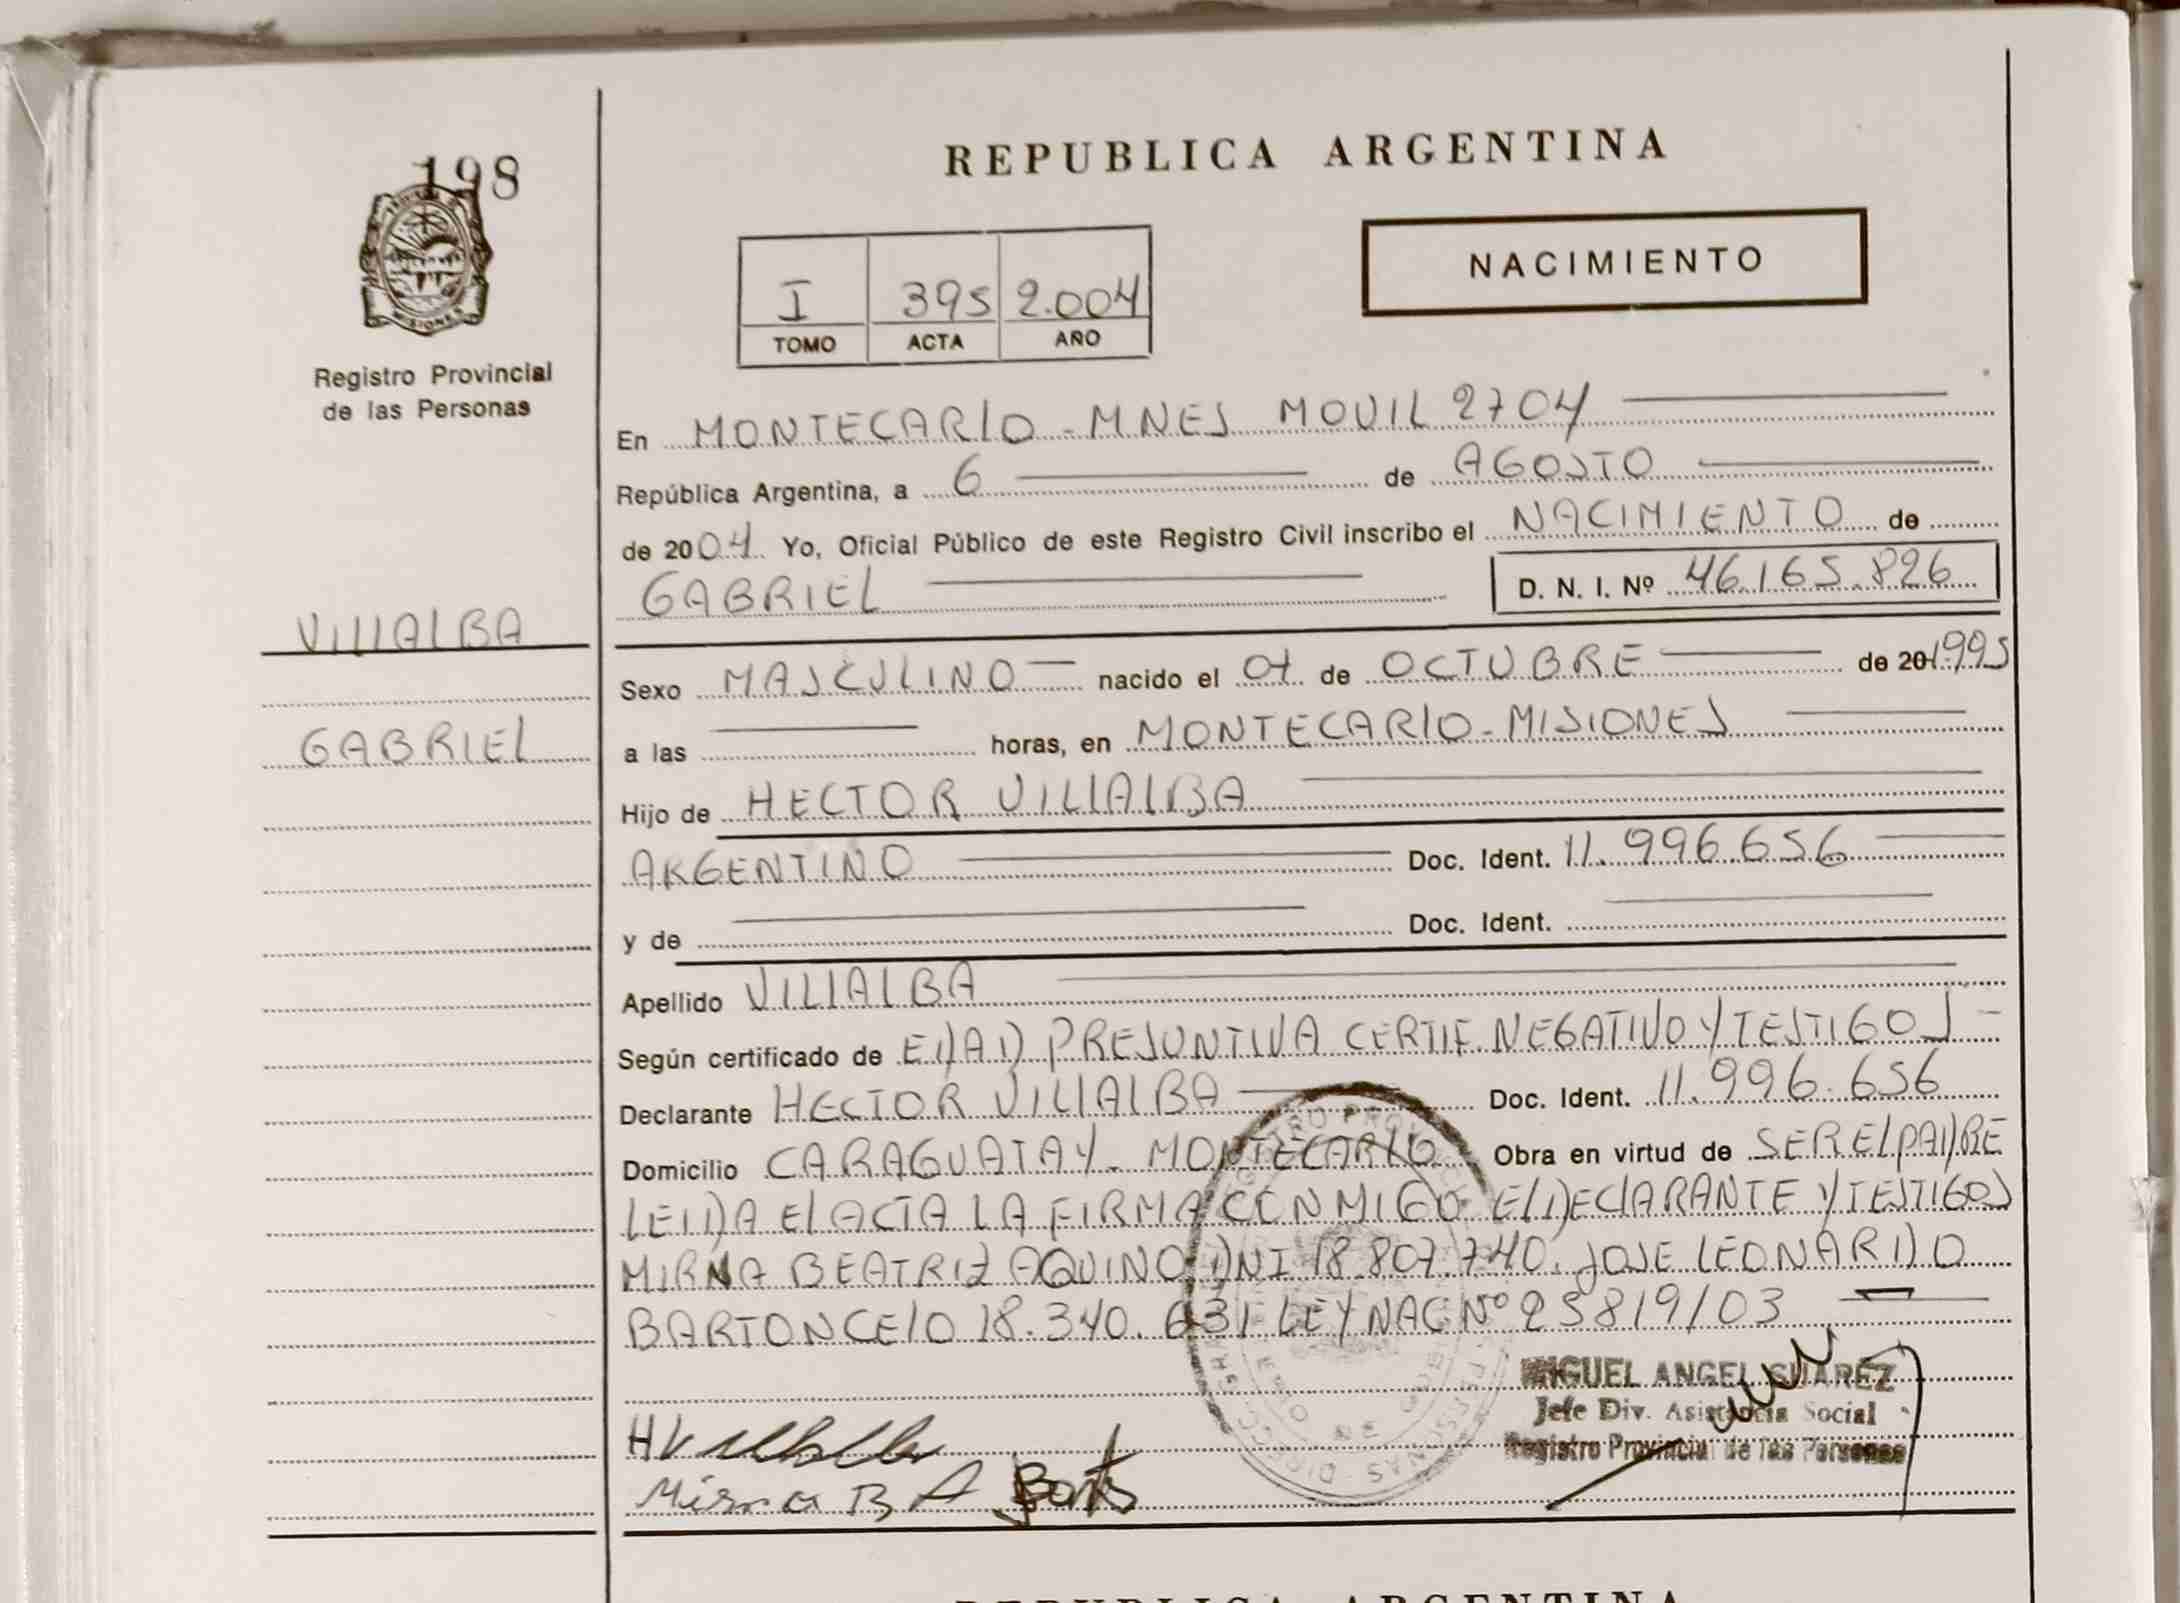 198
MISIONES
Registro Provincial
de las Personas
VILLALBA
GABRIEL
REPUBLICA ARGENTINA
I 395 2.004
TOMO ACTA AÑO
NACIMIENTO
En MONTECARLO - MNES MOVIL 2704
República Argentina, a 6 de AGOSTO
de 2004 Yo, Oficial Público de este Registro Civil inscribo el NACIMIENTO de
GABRIEL D. N. I. Nº 46.165.826
Sexo MASCULINO nacido el 01 de OCTUBRE de 20 1995
a las horas, en MONTECARLO - MISIONES
Hijo de HECTOR VILLALBA
ARGENTINO Doc. Ident. 11.996.656
y de Doc. Ident.
Apellido VILLALBA
Según certificado de EDAD PRESUNTIVA CERTIF. NEGATIVO Y TESTIGOS -
Declarante HECTOR VILLALBA Doc. Ident. 11.996.656
Domicilio CARAGUATAY - MONTECARLO Obra en virtud de SER EL PADRE
LEIDA EL ACTA LA FIRMA CONMIGO EL DECLARANTE Y TESTIGOS
MIRNA BEATRIZ AQUINO DNI 18.807.740. JOSE LEONARDO
BARTONCELO 18.340.631 LEY NAC Nº 25819/03
MIGUEL ANGEL SUAREZ
Jefe Div. Asistencia Social
Registro Provincial de las Personas
H Villalba
Mirna B A
REPUBLICA ARGENTINA